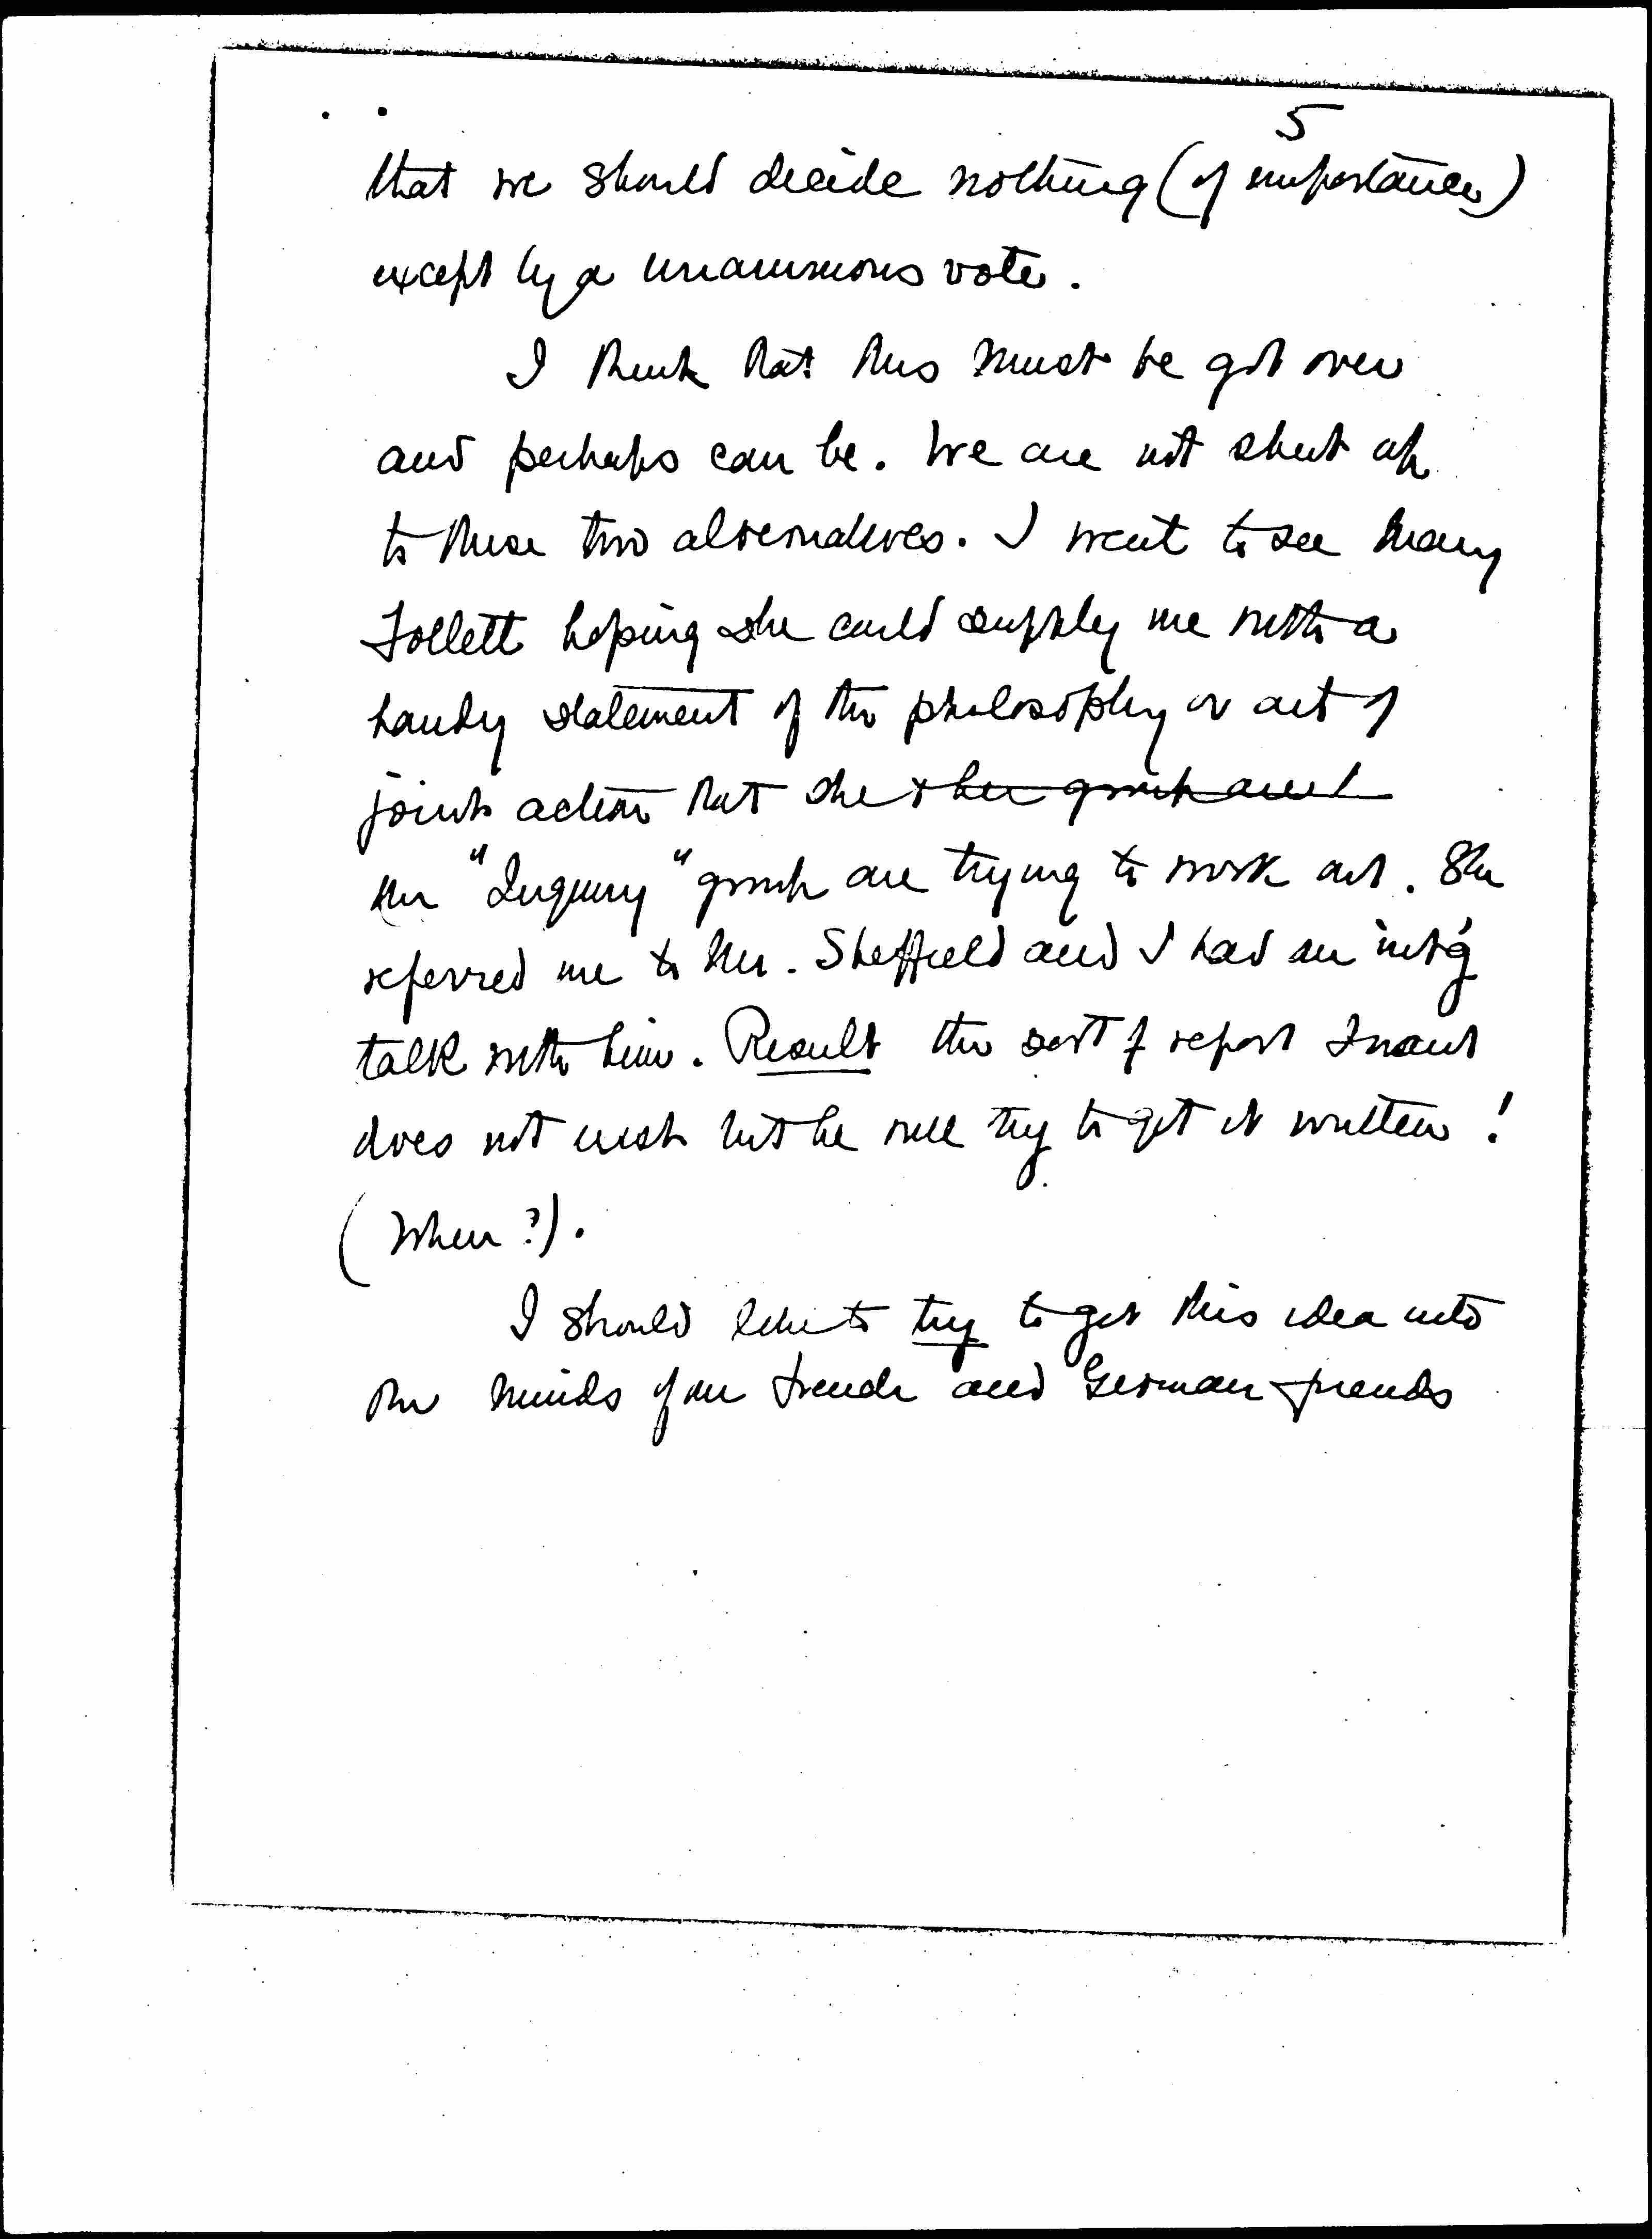 5
that we should decide nothing (of importance)
except by a unanimous vote.
I think that this must be got over
and perhaps can be. We are not shut up
to these two alternatives. I went to see Mary
Follett hoping she could supply me with a
handy statement of the philosophy or art of
joint action that she & her group and
the "Inquiry" group are trying to work out. She
referred me to Mr. Sheffield and I had an int'g
talk with him. Result the sort of report I want
does not exist but he will try to get it written!
(When?).
I should like to try to get this idea into
the minds of our French and German friends